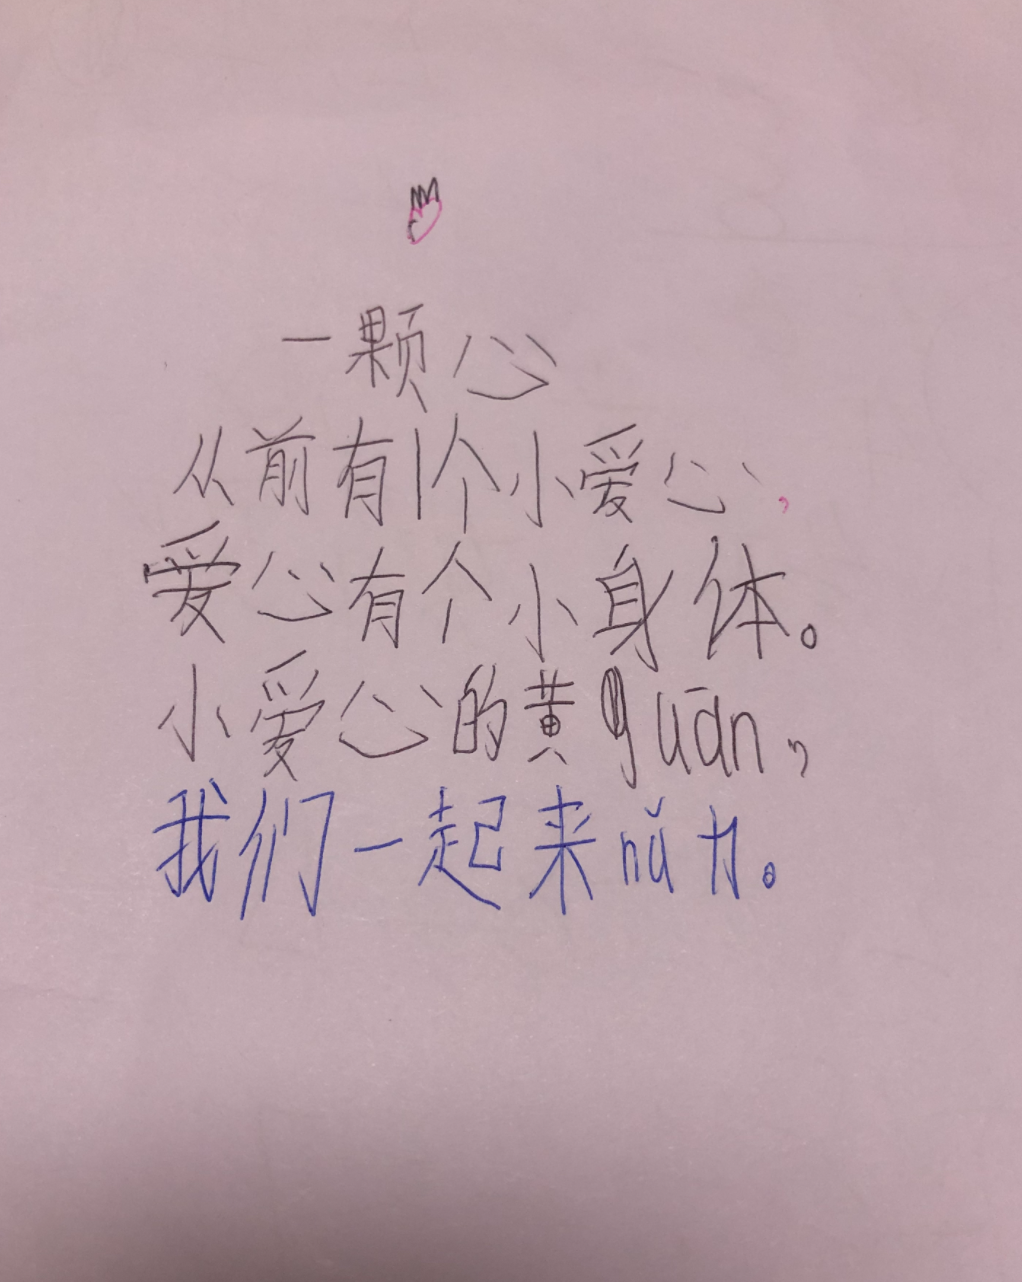 一颗心
从前有1个小爱心,
爱心有个小身体。
小爱心的黄guān,
我们一起来nǔ力。